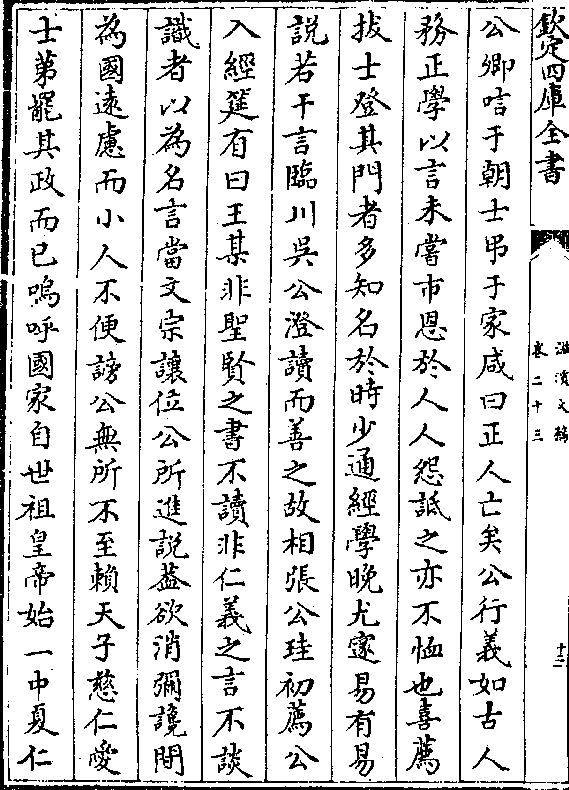 欽定四庫全書
滋溪文稿
卷二十三
十三
公卿咭于朝士弔于家咸曰正人亡矣公行義如古人
務正學以言未嘗市恩於人人怨詆之亦不恤也喜薦
拔士登其門者多知名於時少通經學晚尤䆳易有易
說若干言臨川吳公澄讀而善之故相張公珪初薦公
入經筵有曰王某非聖賢之書不讀非仁義之言不談
識者以為名言當文宗讓位公所進說葢欲消彌讒間
為國遠慮而小人不便謗公無所不至賴天子慈仁愛
士第罷其政而已嗚呼國家自世祖皇帝始一中夏仁